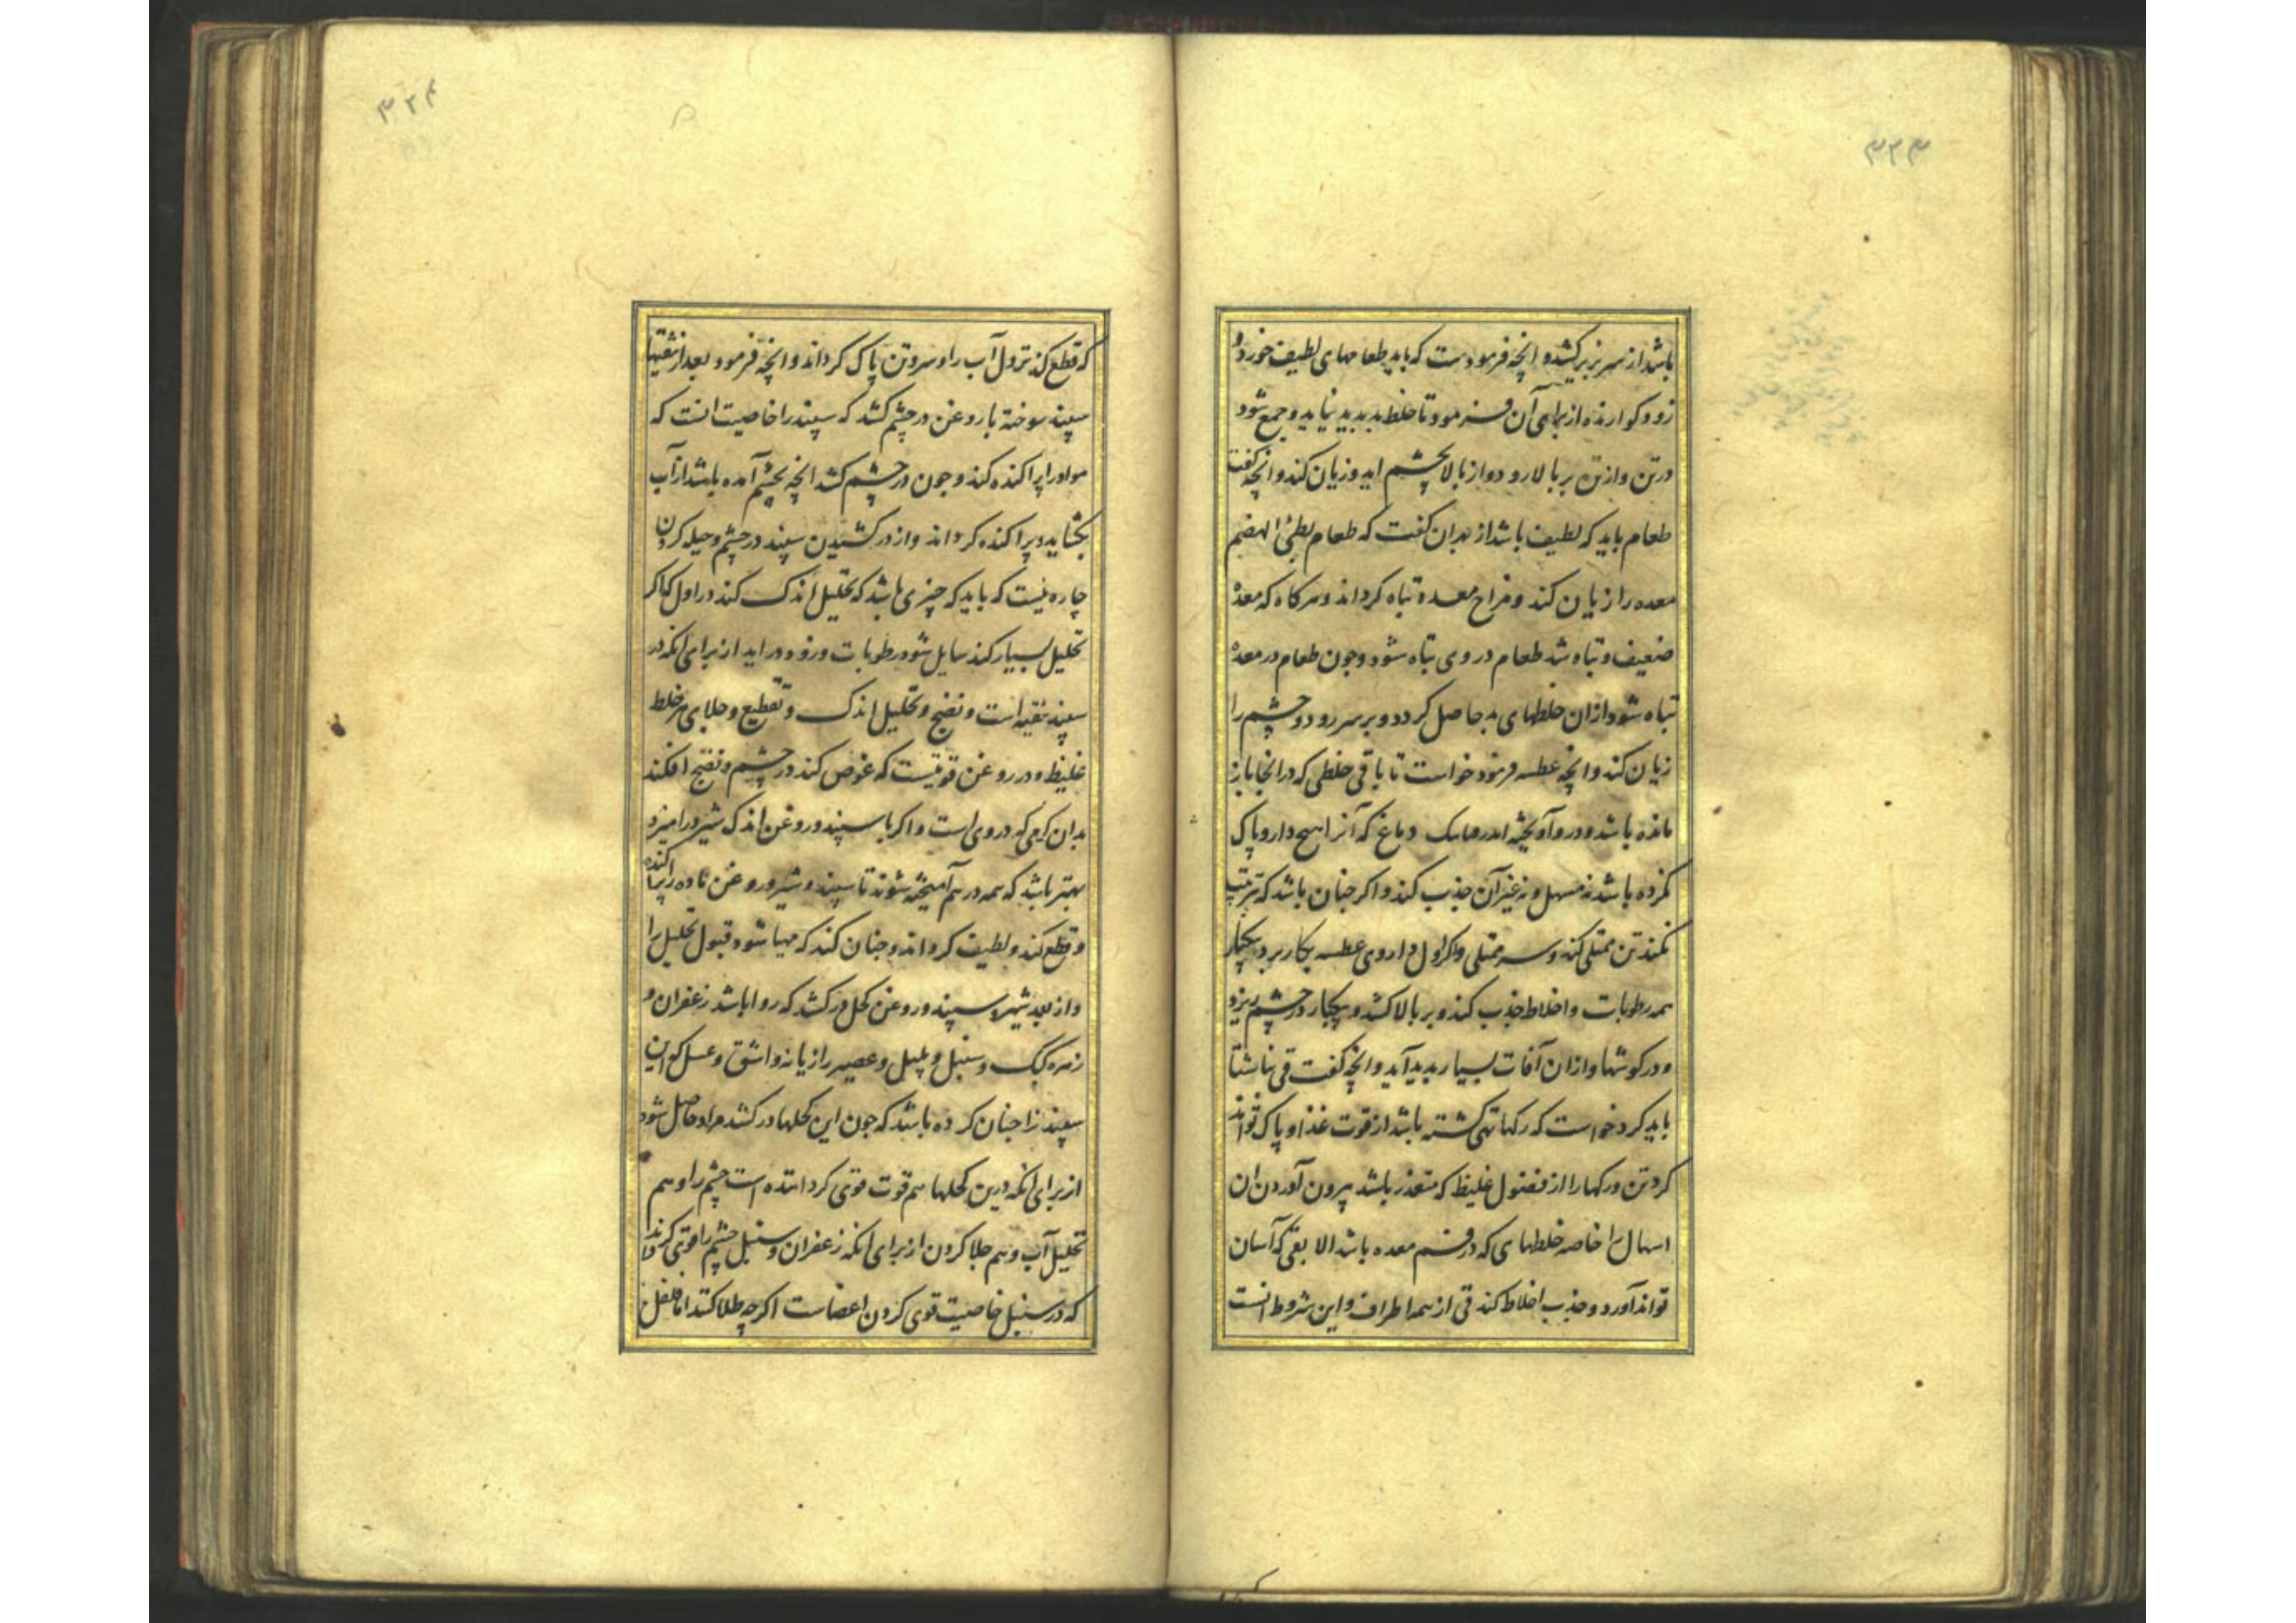 ۳۲۳
باشد از سر بزیر کشد و انچه فرمودست که باید طعامهای لطیف خورد و
زود کوارنده از برای آن فرمود تا خلط بد پدید نیاید و جمع شود
در تن و از تن بر بالا رود و از بالا بچشم اید و زیان کند و انچه کفت
طعام باید که لطیف باشد از بهر ان کفت که طعام بطئ الهضم
معده را زیان کند و مزاج معده تباه کرداند و هر کاه که معده
ضعیف و تباه شد طعام در وی تباه شود و چون طعام در معده
تباه شود ازان خلطهای بد حاصل کردد و بر سر رود و چشم را
زیان کند و انچه عطسه فرمود خواست تا باقی خلطی که در انجا باز
مانده باشد و در وآویخته دماغ که آنرا هیچ دارو پاک
نکرده باشد نه مسهل و نه غیر آن جذب کند و اکر چنان باشد که ترتیب
نکند تن ممتلی کند و سر ممتلی و اکر اول داروی عطسه بکار برد بیکبار
همه رطوبات و اخلاط جذب کند و بر بالا کشد و بیکبار در چشم ریزد
و در کوشها و ازان آفات بسیار پدید آید و انچه کفت قی ناشتا
باید کرد خواست که رکها تهی کشته باشد از قوت غذا و پاک تواند
کرد تن و رکها را از فضول غلیظ که متعذر باشد بیرون آوردن ان
اسهال را خاصه خلطهای که در فم معده باشد الا بقی که آسان
تواند آورد و جذب اخلاط کند قی از همه اطراف و این شروط انست
۳۲۴
که قطع کند نزول آب را و سر و تن پاک کرداند و انچه فرمود بعد از تنقیتها
سپند سوخته با روغن در چشم کشد که سپند را خاصیت انست که
مواد را پراکنده کند و چون در چشم کشد انچه بچشم آمده باشد از آب
بکشاید و پراکنده کرداند و از در کشیدن سپند در چشم و حیله کردن
چاره نیست که باید که چیزی باشد که تحلیل اندک کند در اول که اکر
تحلیل بسیار کند سایل شود رطوبات و زود در اید از برای انکه در
سپند تنقیه است و نضج و تحلیل اندک و تقطیع و جلای هر خلط
غلیظ و در روغن قوتیست که غوص کند در چشم و نضج افکند
بدان کرمی که در وی است و اکر با سپند و روغن اندک شیر در امیزد
بهتر باشد که همه در هم آمیخته شوند تا سپند و شیر و روغن ماده را پراکنده
و قطع کند و لطیف کرداند و چنان کند که مهیا شود قبول تحلیل را
و از بعد شیر و سپند و روغن کحل در کشد که روا باشد زعفران و
زهره کبک و سنبل و پلپل و عصیر رازیانه و اشق و عسل که این
سپند را چنان کرده باشد که چون این کحلها در کشد مراد حاصل شود
از برای انکه درین کحلها هم قوت قوی کرداننده است چشم را و هم
تحلیل آب و هم جلا کردن از برای انکه زعفران و سنبل چشم را قوی کرداند
که در سنبل خاصیت قوی کردن اعضاست اکر چه طلا کنند اما فلفل